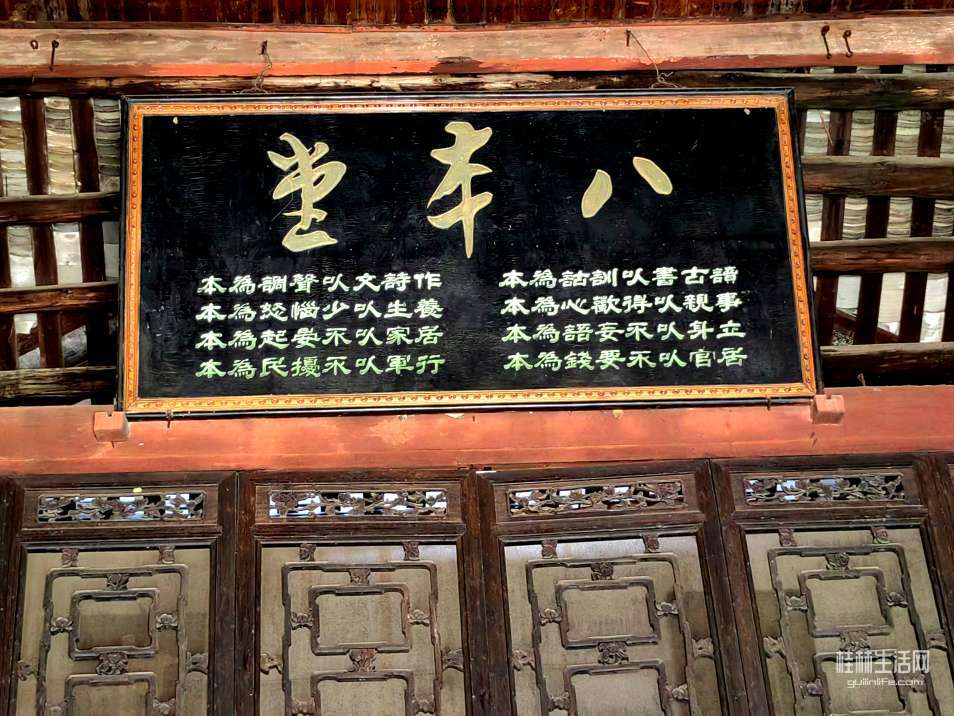 八本堂
讀古書以訓詁為本
事親以得歡心為本
立身以不妄語為本
居官以不要錢為本
作詩文以聲調為本
養生以少惱怒為本
居家以不晏起為本
行軍以不擾民為本
桂林生活网
guilinlife.com